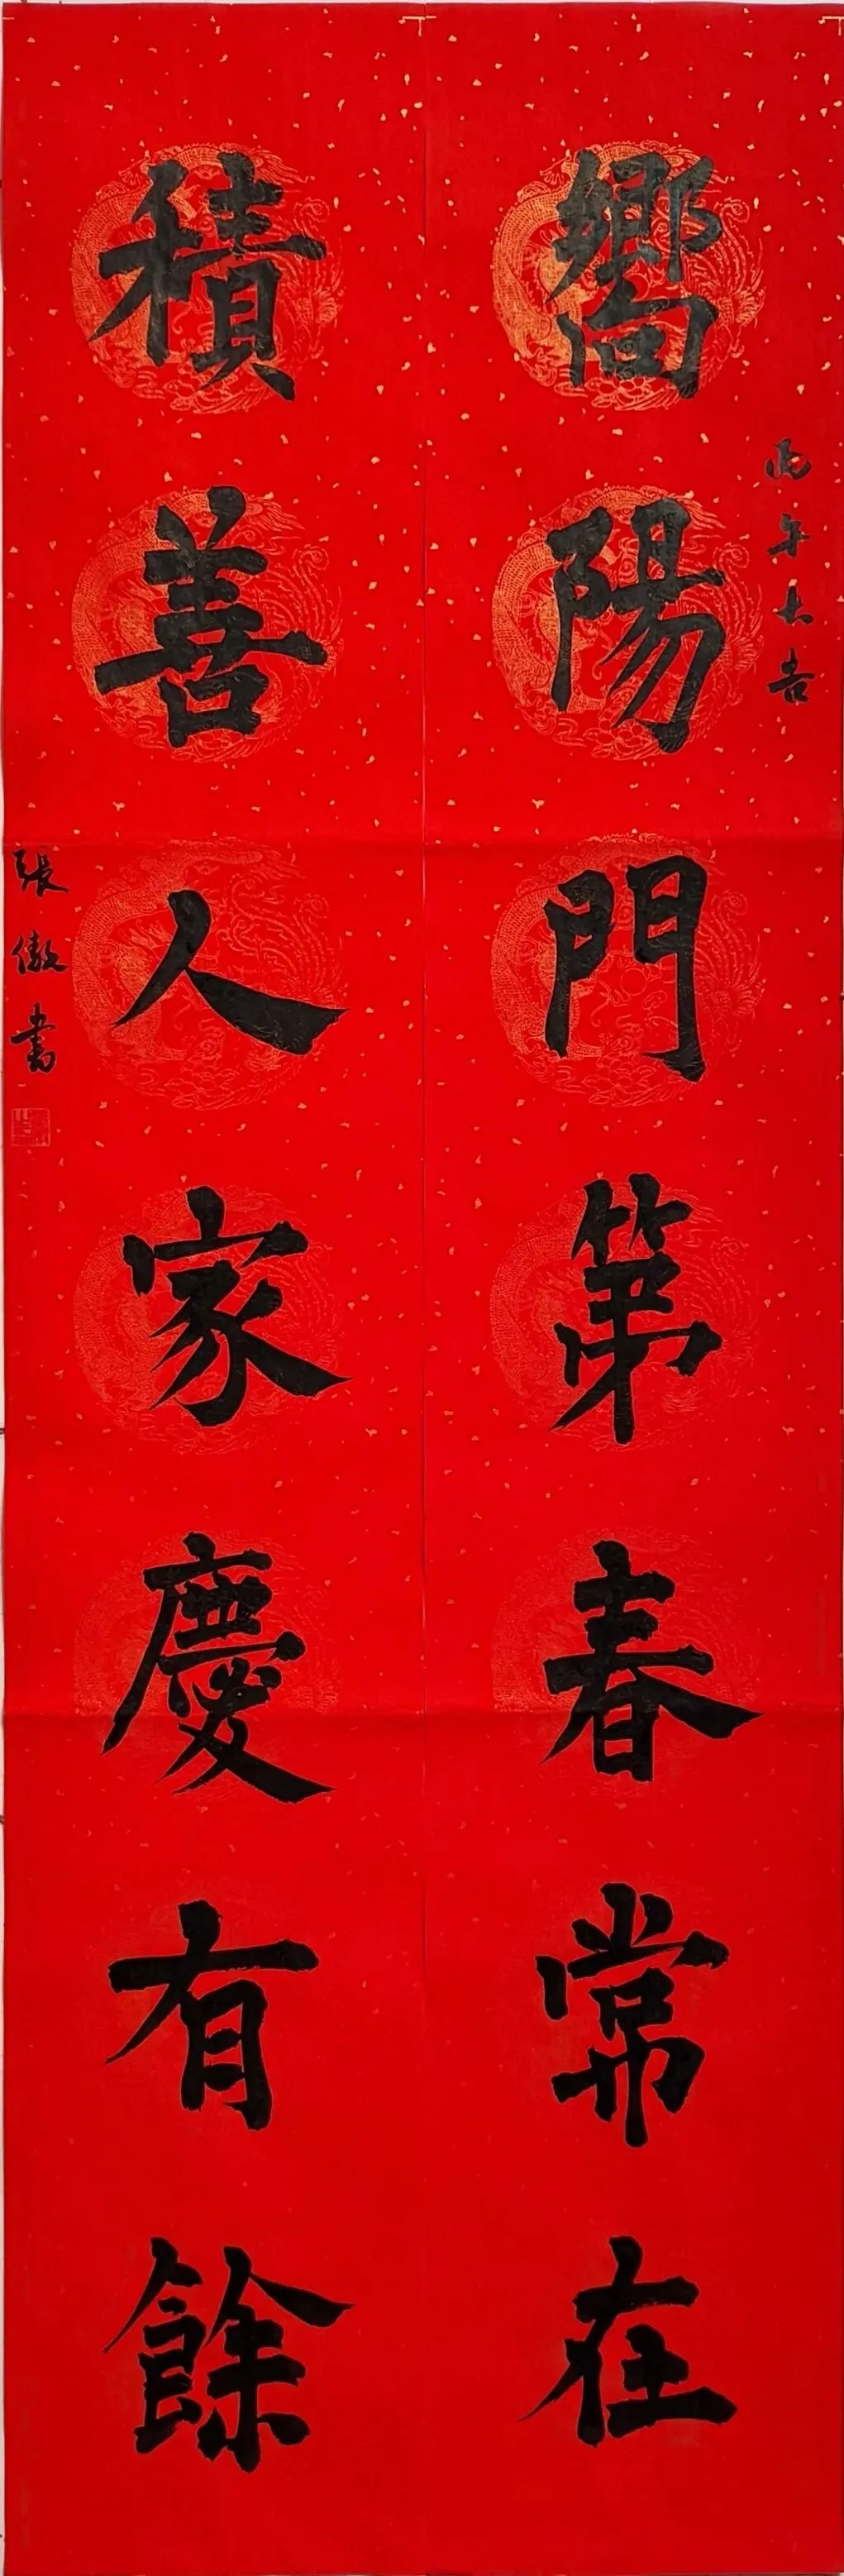 丙午大吉
嚮陽門第春常在
積善人家慶有餘
張傲書